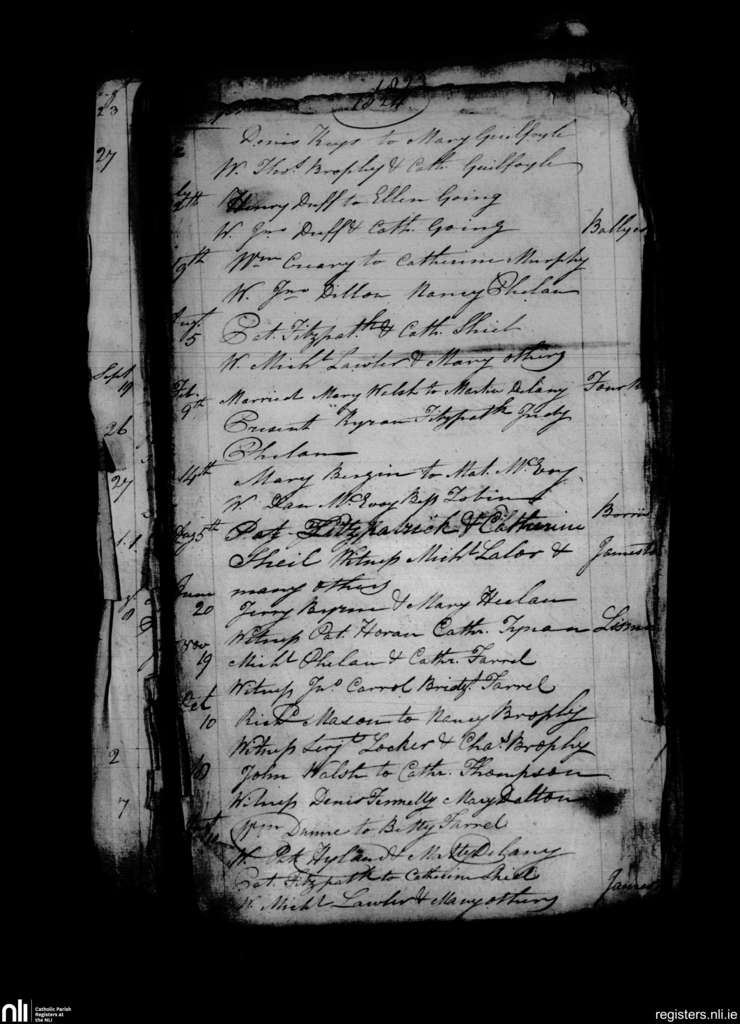 1823
1824
23
Denis Keys to Mary Guilfoyle
27
W. Thos. Brophy & Cath. Guilfoyle
Henry Duff to Ellen Going
W. Jno. Duff & Cath. Going
9th Wm Creary to Catherine Murphy
W. Jno Dillon Nancy Phelan
Augt. 5 Pat. Fitzpatk. & Cath. Shiel
W. Michl. Lawler & Many others
Sept 19
Feb. 9th Married Mary Welsh to Martin Delany
Present Kyran Fitzpatk Judy
26
Phelan
14th Mary Bergin to Mat. McEvoy
27
W. Dan McEvoy Bess Tobin
Aug 5th Pat Fitzpatrick & Catherine
Sheil Witness Michl Lalor &
many others
June 20 Jerry Byrne & Mary Heelan
Witness Pat. Horan Cathr. Tynan
Nov 19 Michl Phelan & Cathr. Farrel
Witness Jno. Carrol Bridgt. Farrel
Oct 10 Richd. Mason to Nancy Brophy
Witness Locker & Chas. Brophy
John Walsh to Cathr. Thompson
2
Witness Denis Fennelly Mary Dalton
7
Wm Dunne to Betty Farrel
W. Pat Hyland & Delany
Pat. Fitzpatk to Catherine Shiel
W. Michl Lawler & Many others
nli
Catholic Parish
Registers at
the NLI
registers.nli.ie